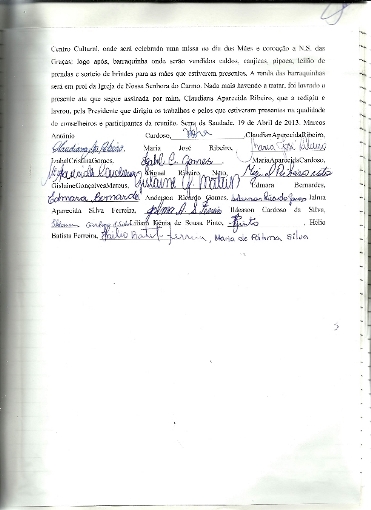 Centro Cultural, onde será celebrada uma missa no dia das Mães e coroação a N.S. das
Graças; logo após, barraquinha onde serão vendidos caldos, canjicas, pipoca, leilão de
prendas e sorteio de brindes para as mães que estiverem presentes. A renda das barraquinhas
será em prol da Igreja de Nossa Senhora do Carmo. Nada mais havendo a tratar, foi lavrado o
presente ata que segue assinada por mim, Claudiana Aparecida Ribeiro, que a redigiu e
lavrou, pelo Presidente que dirigiu os trabalhos e pelos que estiveram presentes na qualidade
de conselheiros e participantes da reunião. Serra da Saudade, 19 de Abril de 2013. Marcos
Antônio Cardoso, ClaudianaAparecidaRibeiro,
Maria José Ribeiro,
IzabelCristinaGomes, Izabel C. Gomes MariaAparecidaCardoso,
Miguel Ribeiro Neto,
GislaineGonçalvesMateus, Edmara Bernardes,
Edmara Bernardes Anderson Ricardo Gomes, Jalma
Aparecida Silva Ferreira, Jalma A. S. Ferreira Cardoso da Silva,
de Sousa Pinto, Hélio
Batista Ferreira, Hélio Batist Ferreira, Maria de Fátima Silva